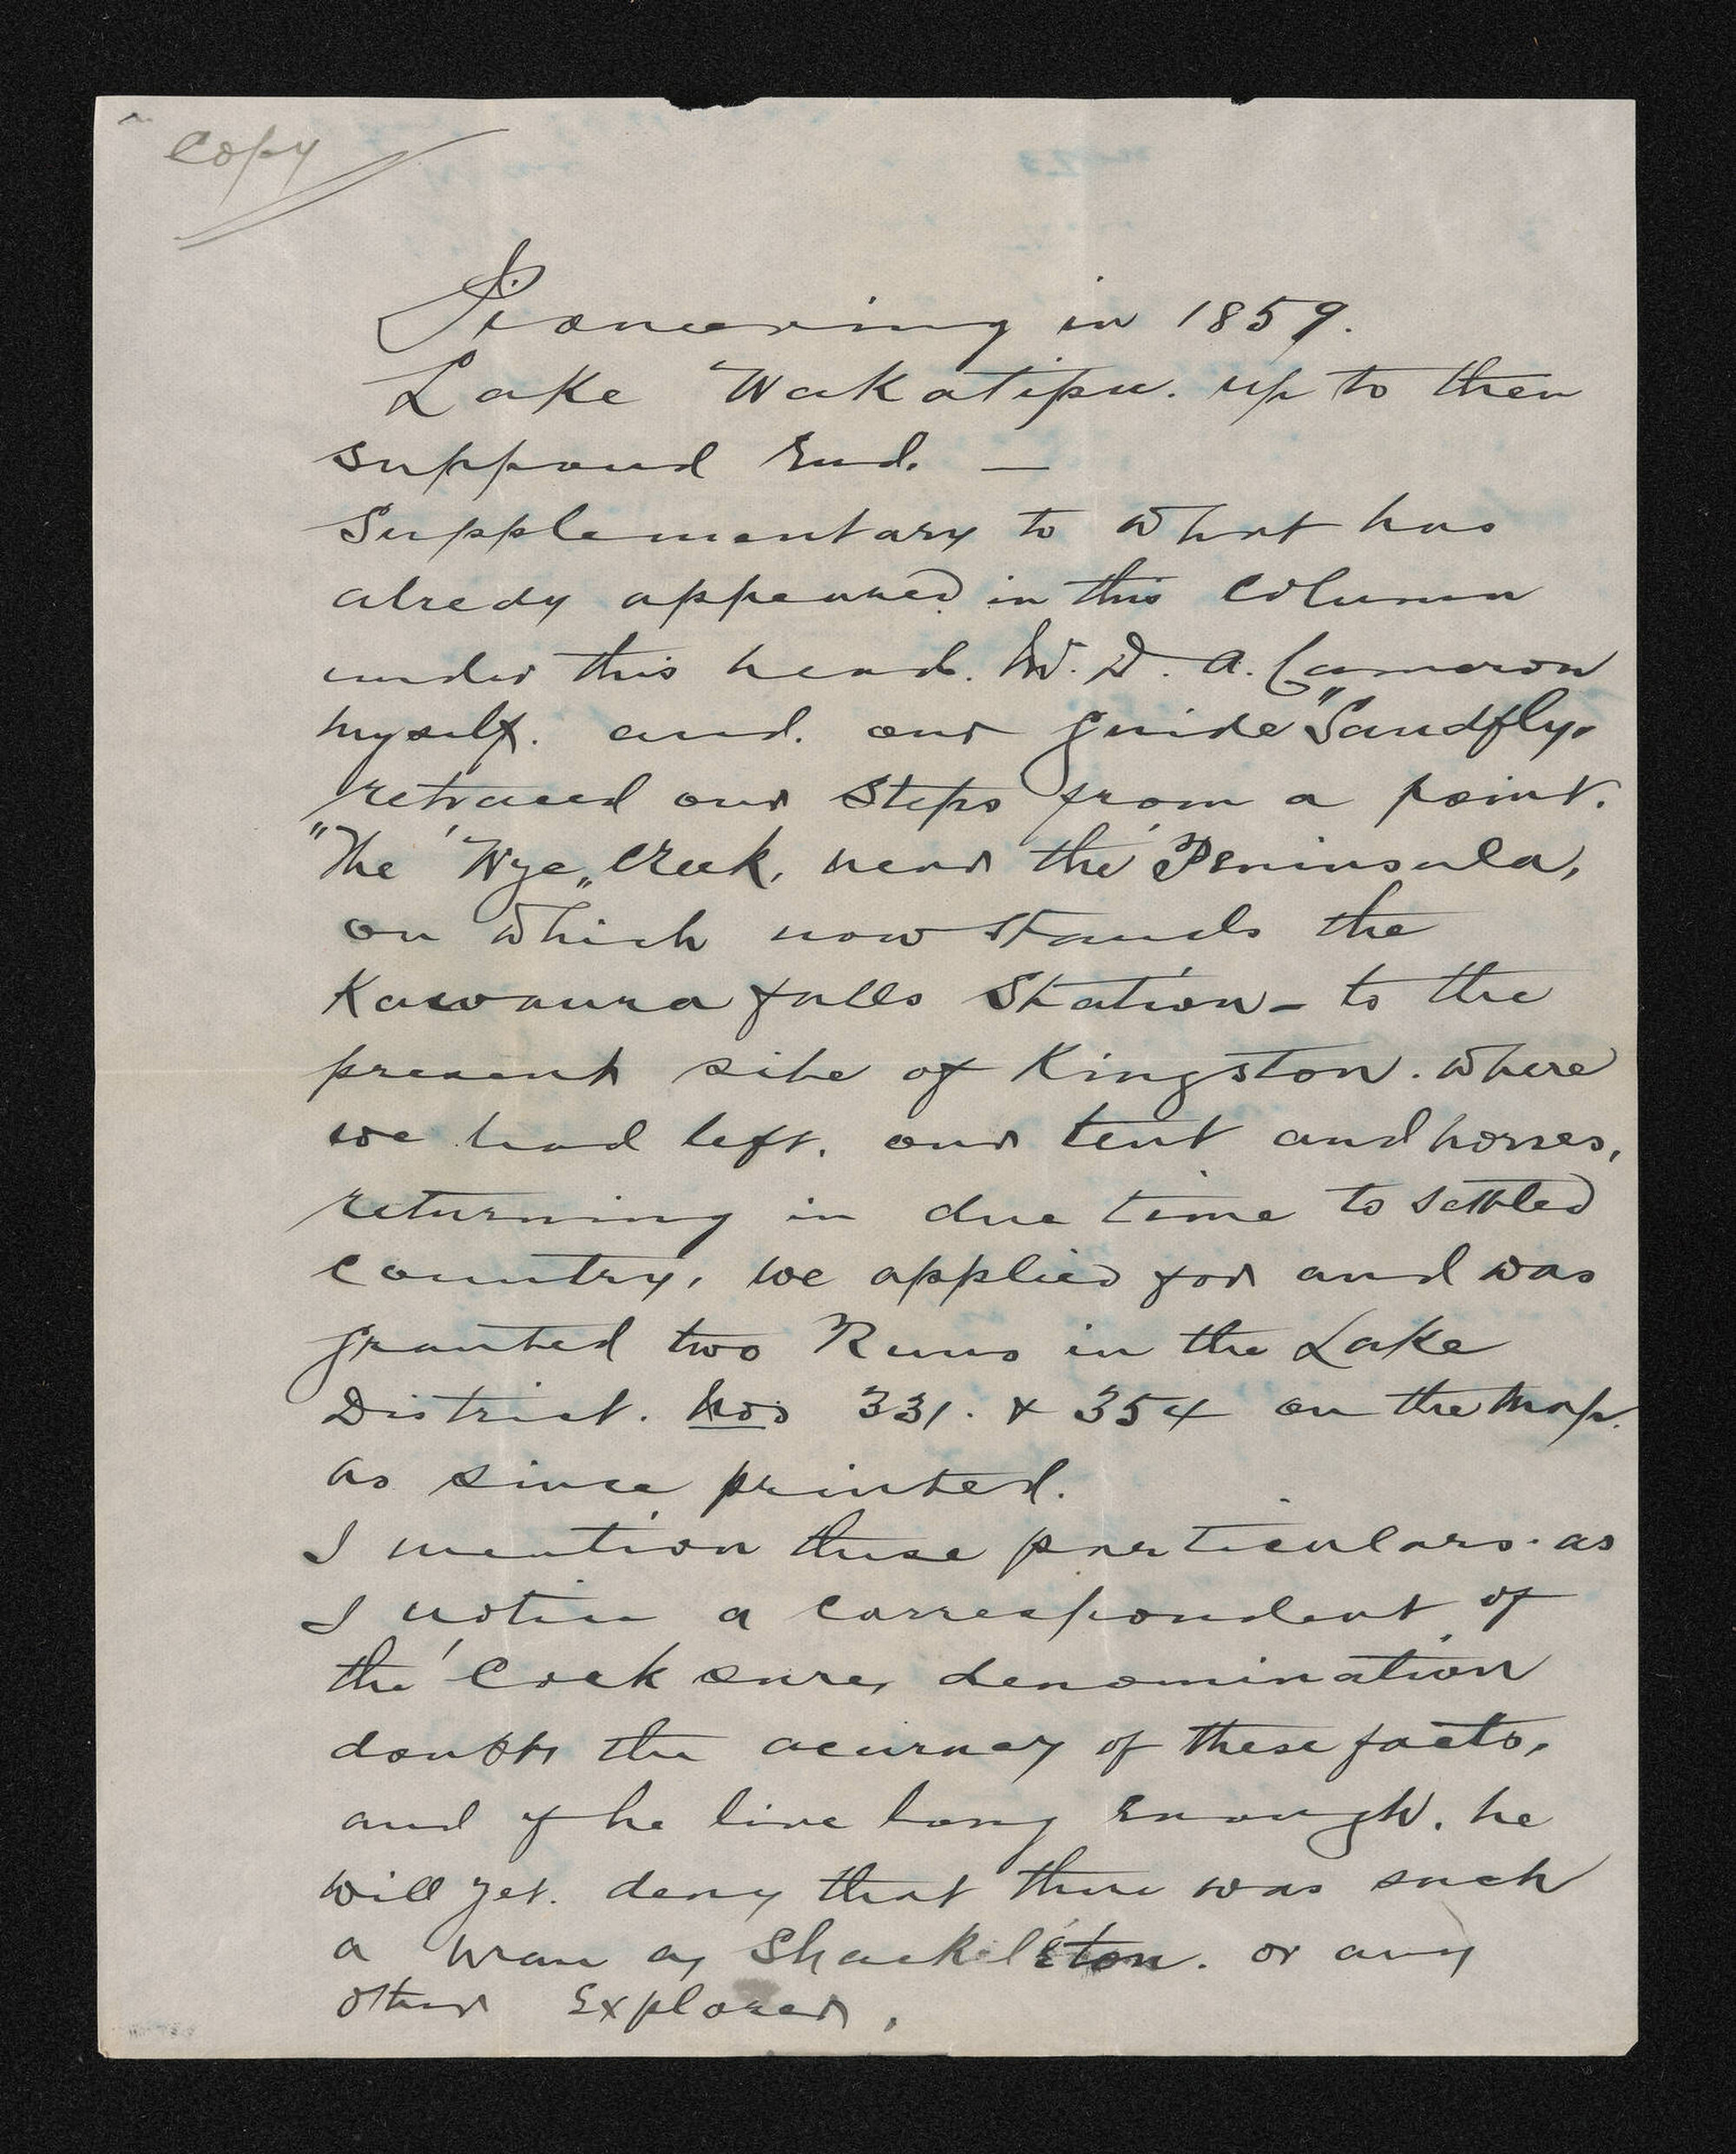 Copy
Pioneering in 1859.
Lake Wakatipu. up to then
supposed End. —
Supplementary to what has
alredy appeared in this Column
under this head. Mr. D. A. Cameron
myself. and. our guide "Sandfly,
retraced our steps from a point.
"The 'Wye„ Creek, near the Peninsula,
on which now stands the
Kawaura falls Station - to the
present site of Kingston. where
we had left. our tent and horses,
returning in due time to settled
Country, we applied for and was
granted two Runs in the Lake
District. Nos 331. & 354 on the Map.
as since printed.
I mention these particulars. as
I notice a correspondent of
the 'Cock sure, denomination
doubts the acuracy of these facts,
and if he live long Enough. he
will yet. deny that there was such
a man as Shackelton. or any
other Explorer,